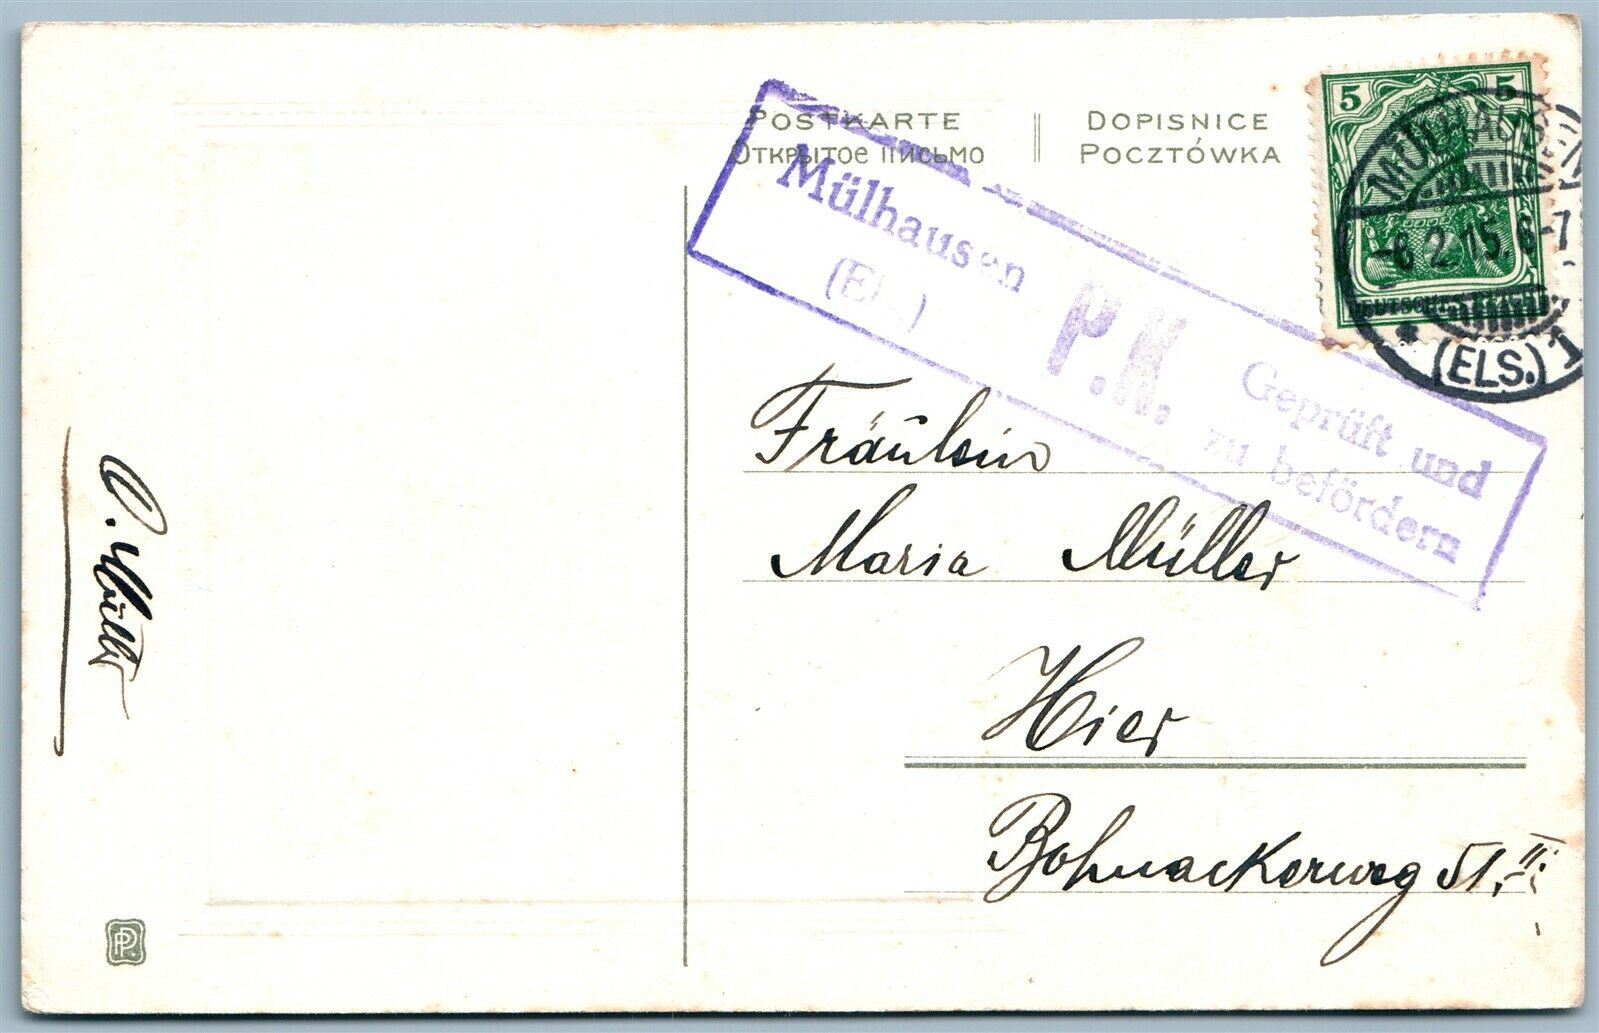 POSTKARTE
DOPISNICE
Открытое письмо
POCZTÓWKA
5 5
DEUTSCHES REICH
MÜLHAUSEN
-8.2.15.6-7
(ELS.) 1
Mülhausen
(Els.)
P.K.
Geprüft und
zu befördern
Fräulein
Maria Müller
Hier
Bohnackerweg 51, II.
O.
PP